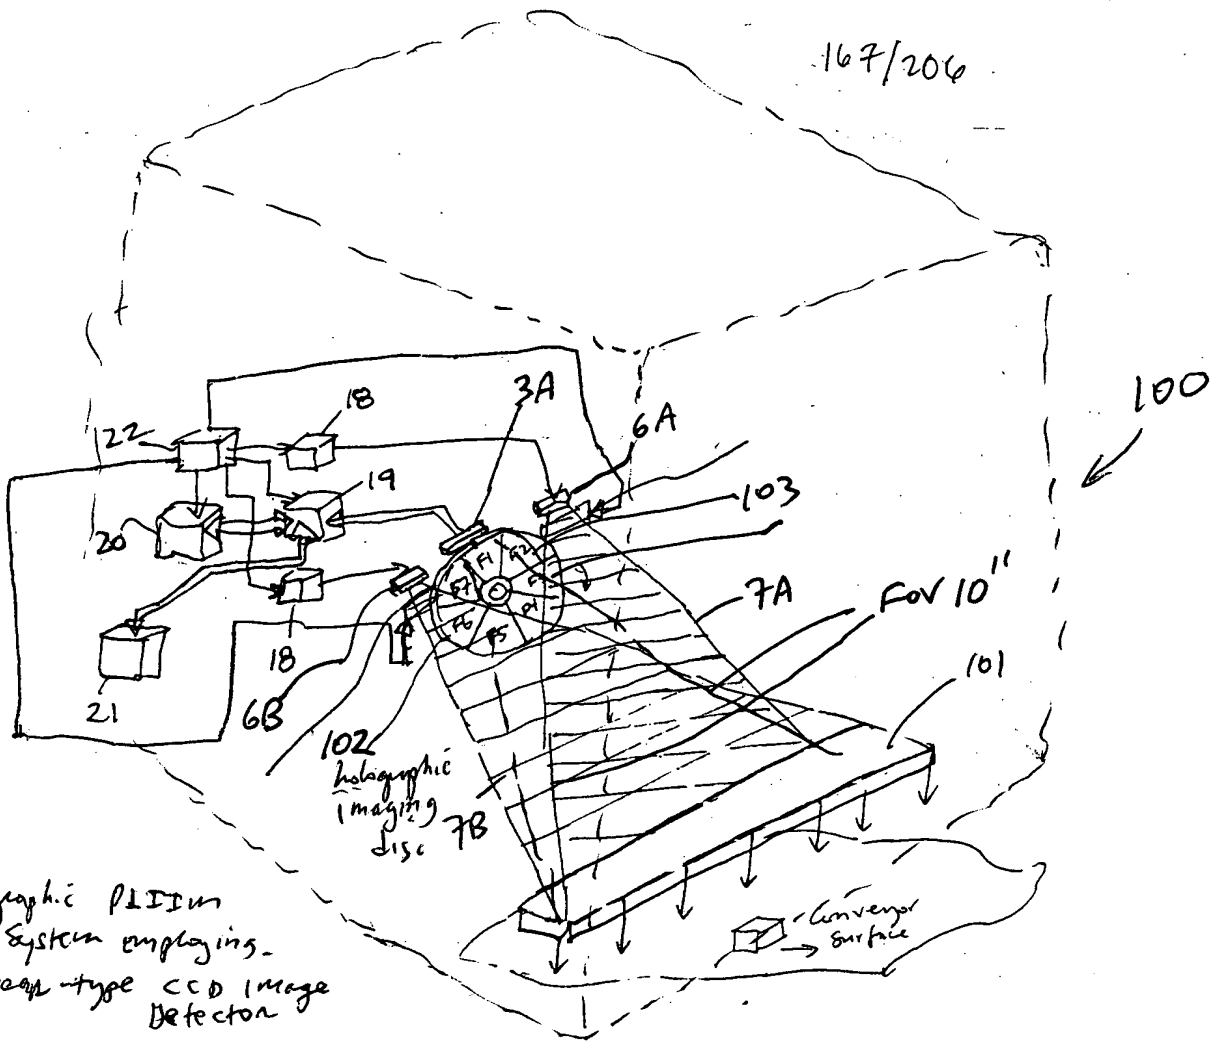 167/206
100
3A
18
6A
22
19
103
20
7A
FOV 10"
F1
F2
F7
F6
F5
18
101
21
6B
102
holographic
imaging
disc
7B
Conveyor
surface
graphic PLIIM
System employing
-type CCD Image
Detector